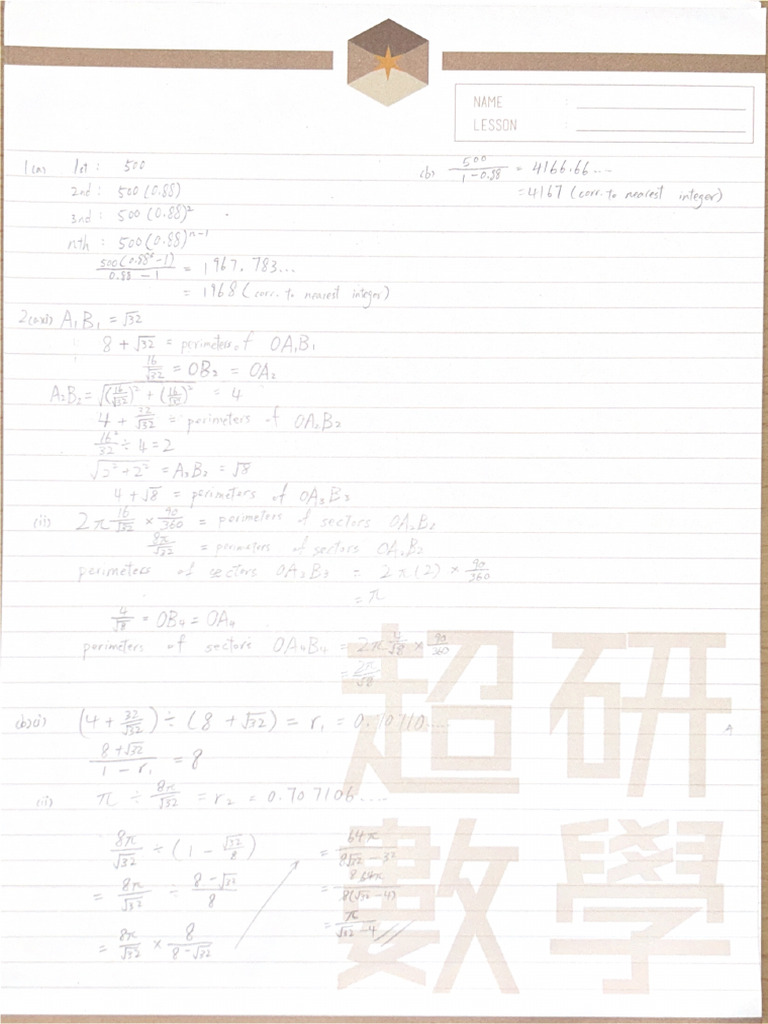 NAME :
LESSON :
1(a) 1st : 500
2nd : 500 (0.88)
3rd : 500 (0.88)²
nth : 500(0.88)ⁿ⁻¹
= 1967.783...
= 1968 (corr. to nearest integer)
(b) 500/(1-0.88) = 4166.66...
= 4167 (corr. to nearest integer)
2(a)(i) A₁B₁ = √32
8 + √32 = perimeters of OA₁B₁
16/√32 = OB₂ = OA₂
A₂B₂ = √((16/√32)² + (16/√32)²) = 4
4 + 32/√32 = perimeters of OA₂B₂
16²/32 ÷ 4 = 2
√(2²+2²) = A₃B₃ = √8
4 + √8 = perimeters of OA₃B₃
(ii) 2π 16/√32 × 90/360 = perimeters of sectors OA₂B₂
8π/√32 = perimeters of sectors OA₂B₂
perimeters of sectors OA₃B₃ = 2π(2) × 90/360
= π
4/√8 = OB₄ = OA₄
perimeters of sectors OA₄B₄ = 2π 4/√8 × 90/360
= 2π/√8
(b)(i) (4 + 32/√32) ÷ (8 + √32) = r₁ = 0.70710....
(8+√32)/(1-r₁) = 8
(ii) π ÷ 8π/√32 = r₂ = 0.707106....
8π/√32 ÷ (1 - √32/8)
= 8π/√32 ÷ (8-√32)/8
= 8π/√32 × 8/(8-√32)
= 64π/(8√32 - 32)
= 64π/8(√32 - 4)
= π/(√32 - 4)
超研
數學